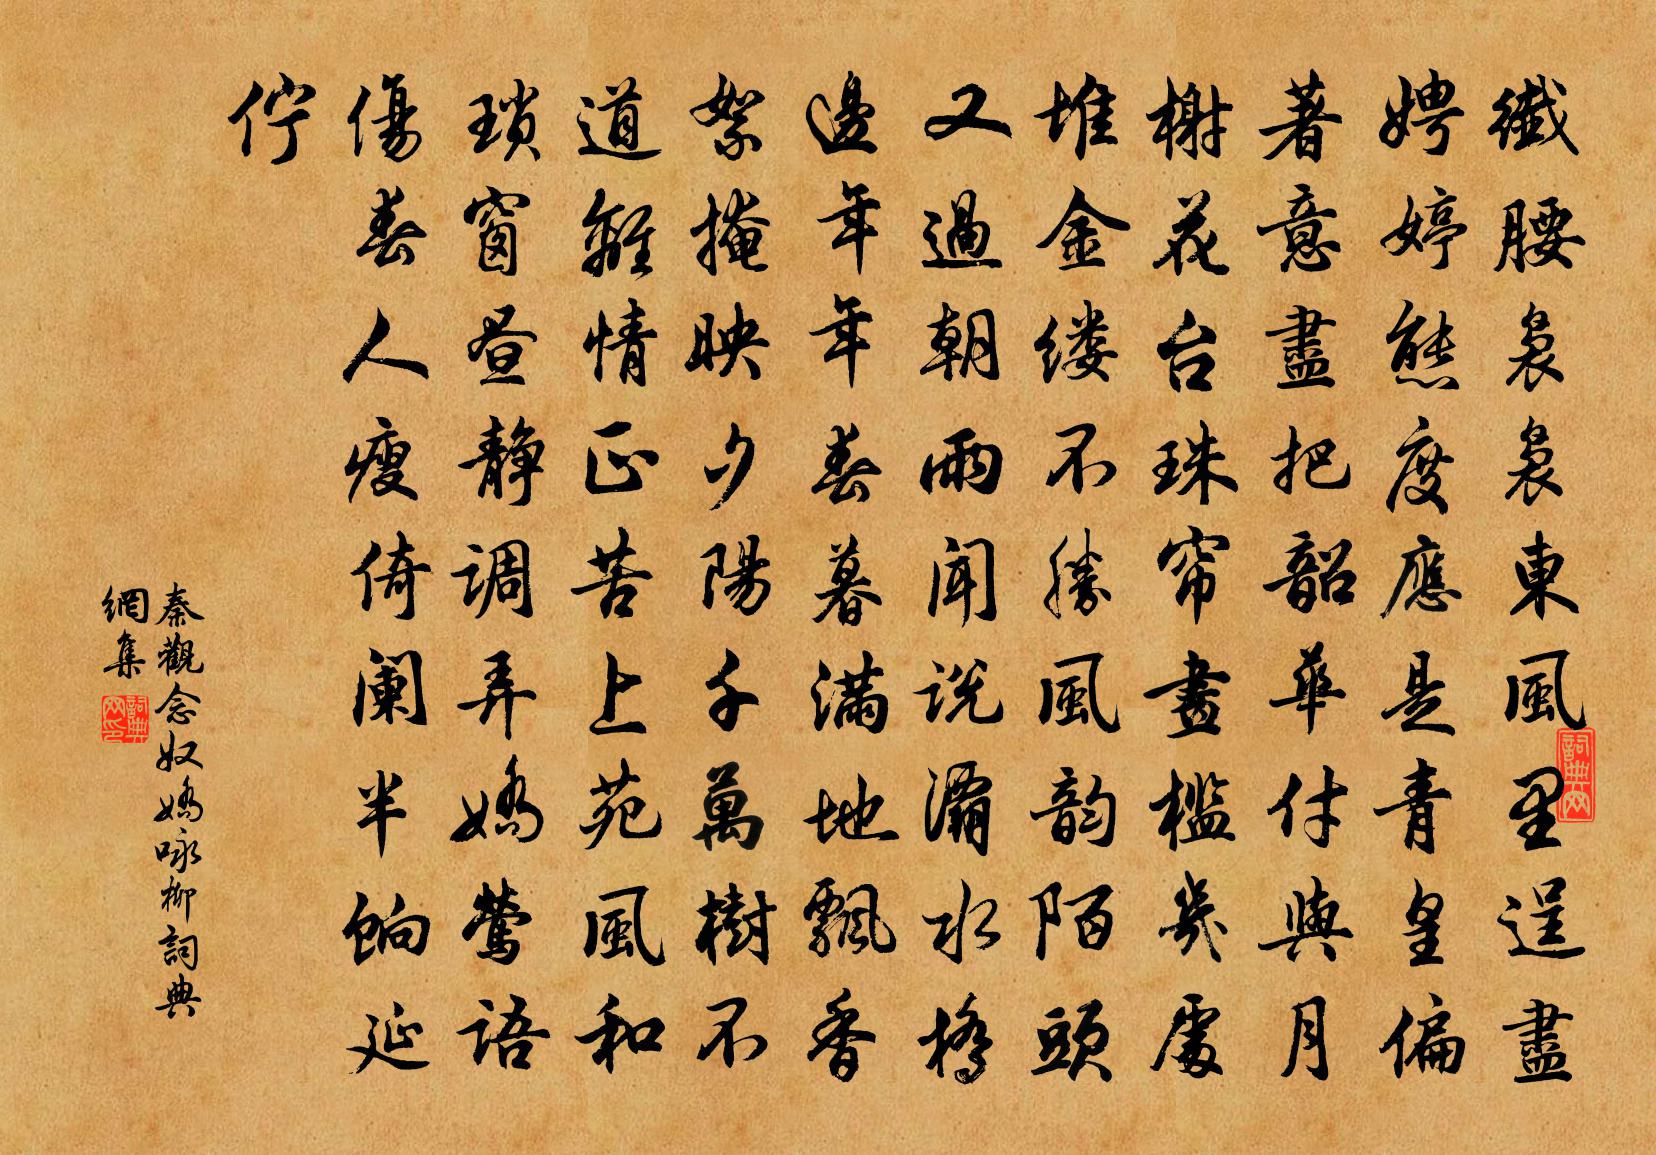 纖腰裊裊東風里逞盡
娉婷態度應是青皇偏
著意盡把韶華付與月
榭花台珠帘畫檻幾處
堆金缕不勝風韵陌頭
又過朝雨聞説灞水橋
邊年年春暮滿地飄香
絮掩映夕陽千萬樹不
道離情正苦上苑風和
瑣窗昼靜調弄嬌鶯語
傷春人瘦倚闌半餉延
佇
秦觀念奴嬌咏柳詞典
網集
詞典网
詞典网印